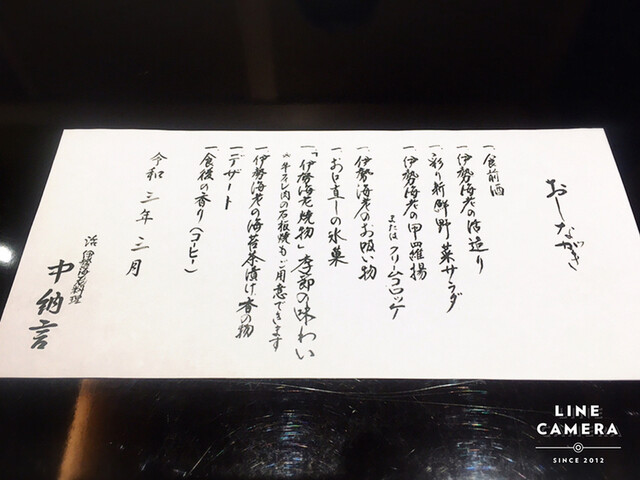 おしながき
一、食前酒
一、伊勢海老の活造り
一、彩り新鮮野菜サラダ
一、伊勢海老の甲羅揚
または クリームコロッケ
一、伊勢海老のお吸い物
一、お口直しの氷菓
一、「伊勢海老焼物」季節の味わい
※牛ヒレ肉の石板焼もご用意できます
一、伊勢海老の海苔茶漬け 香の物
一、デザート
一、食後の香り(コーヒー)
令和 三年 三月
活 伊勢海老料理
中納言
LINE
CAMERA
SINCE 2012